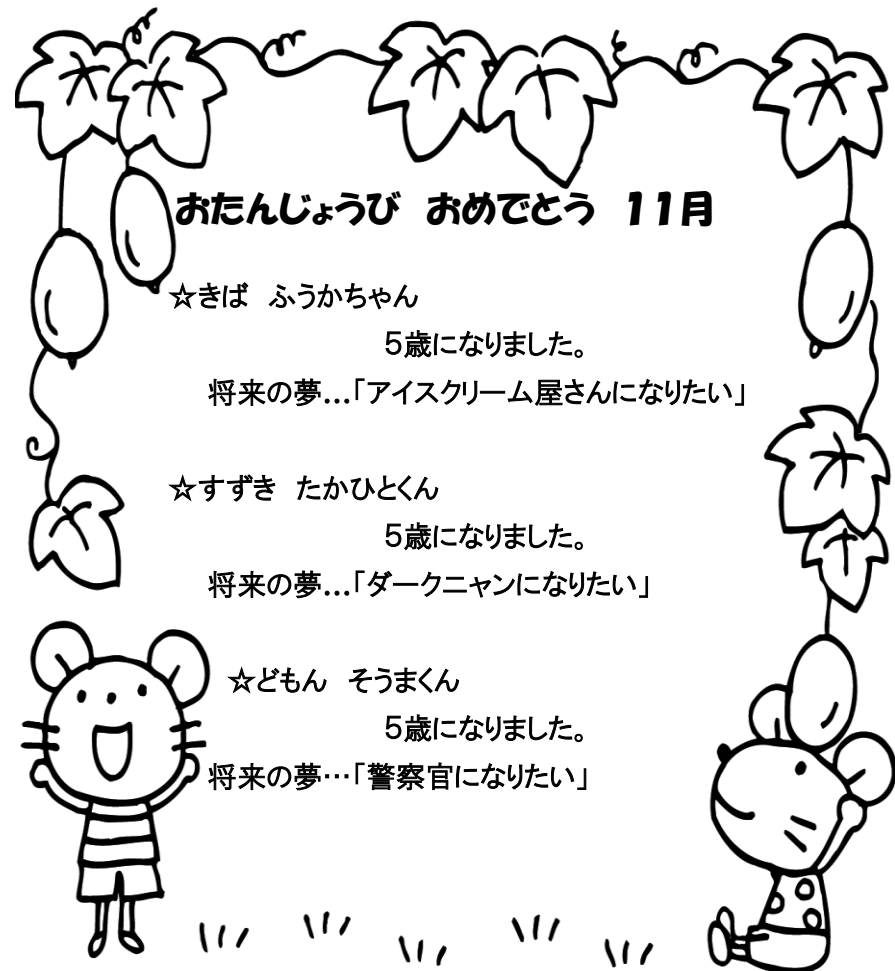 おたんじょうび　おめでとう　11月
☆きば　ふうかちゃん
5歳になりました。
将来の夢…「アイスクリーム屋さんになりたい」
☆すずき　たかひとくん
5歳になりました。
将来の夢…「ダークニャンになりたい」
☆どもん　そうまくん
5歳になりました。
将来の夢…「警察官になりたい」